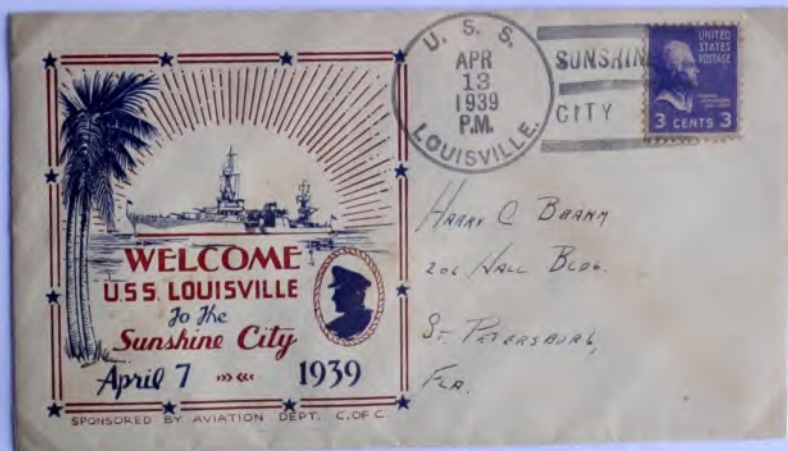 U. S. S.
LOUISVILLE.
APR
13
1939
P.M.
SUNSHIN
CITY
UNITED
STATES
POSTAGE
3 CENTS 3
WELCOME
U.S.S. LOUISVILLE
To The
Sunshine City
April 7 1939
SPONSORED BY AVIATION DEPT. C. OF C.
HARRY C
206 HALL BLDG.
ST. PETERSBURG,
FLA.